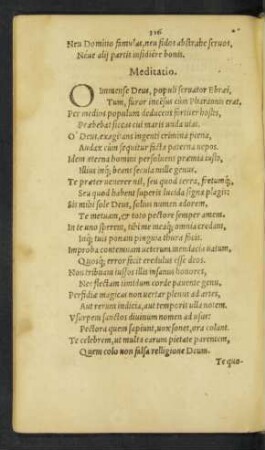 326
Neu Domino famulas, neu fidos abstrahe seruos,
Néue alij partis insidiêre bonis.
Meditatio.
O Immense Deus, populi seruator Ebræi,
Tum, furor incisus cùm Pharaonis erat,
Per medios populum deducens fortiter hostes,
Præbebat siccas cui maris unda uias.
O' Deus, exagitans ingenti crimina pœna,
Audax cùm sequitur facta paterna nepos.
Idem æterna hominis persoluens præmia iustis,
Illius inq́; beans secula mille genus.
Te præter uenerer nil, seu quod terra, fretumq́;,
Seu quod habent superi lucida signa plagis:
Sis mihi sole Deus, solius nomen adorem,
Te metuam, ex toto pectore semper amem.
In te uno sperem, tibi me meaq́; omnia credam,
Inq́; tuis ponam pinguia thura focis.
Improba contemnam ueterum mendacia uatum,
Quosq́; error ficit credulus esse deos.
Non tribuam iussos illi insanus honores,
Nec flectam timidum corde pauente genu.
Perfidiæ magicas non uertar plenus ad artes,
Aut rerum indicia, aut temporis ulla notem.
Vsurpem sanctos diuinum nomen ad usus:
Pectora quem sapiunt, uox sonet, ora colant.
Te celebrem, ut multa earum pietate parentem,
Quem colo non falsa relligione Deum.
Te quo-